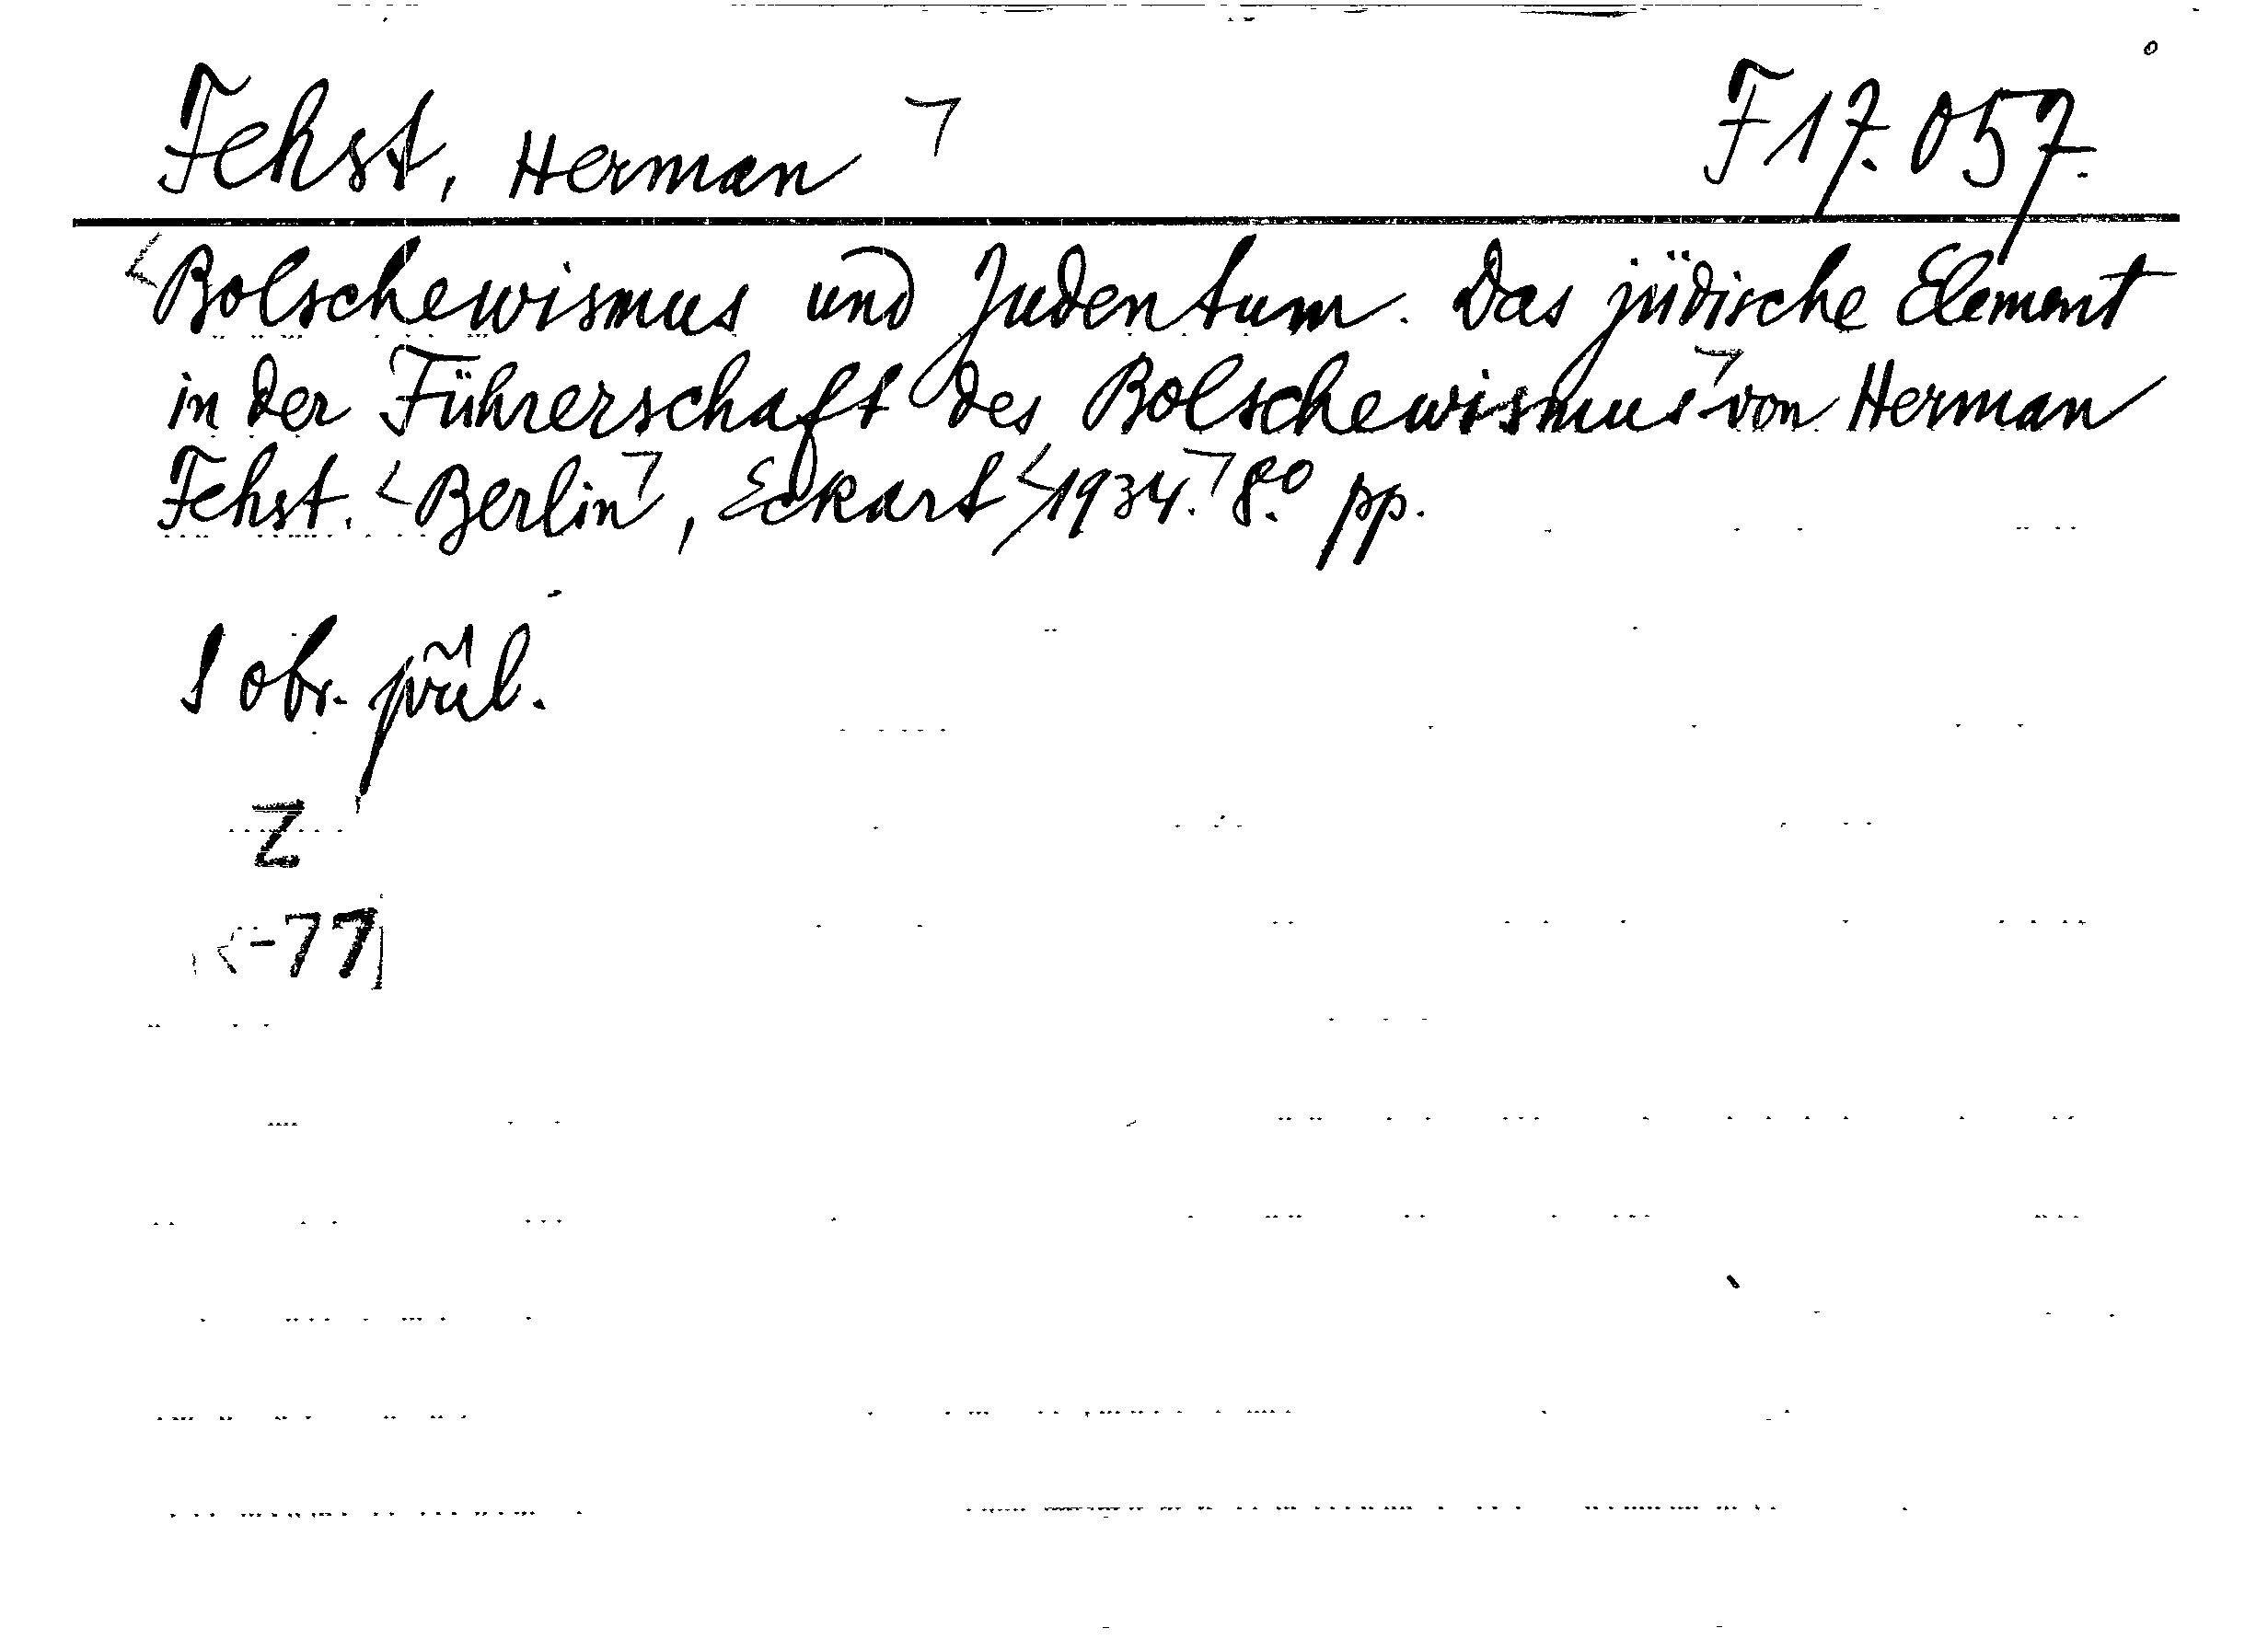 Fehst, Herman ¬ F 17.057.
<Bolschewismus und Judentum. Das jüdische Element
in der Führerschaft des Bolschewismus ¬ von Herman
Fehst. <Berlin ¬, Eckart <1934. ¬ 8.º pp.
S obr. příl.
Z
K-77